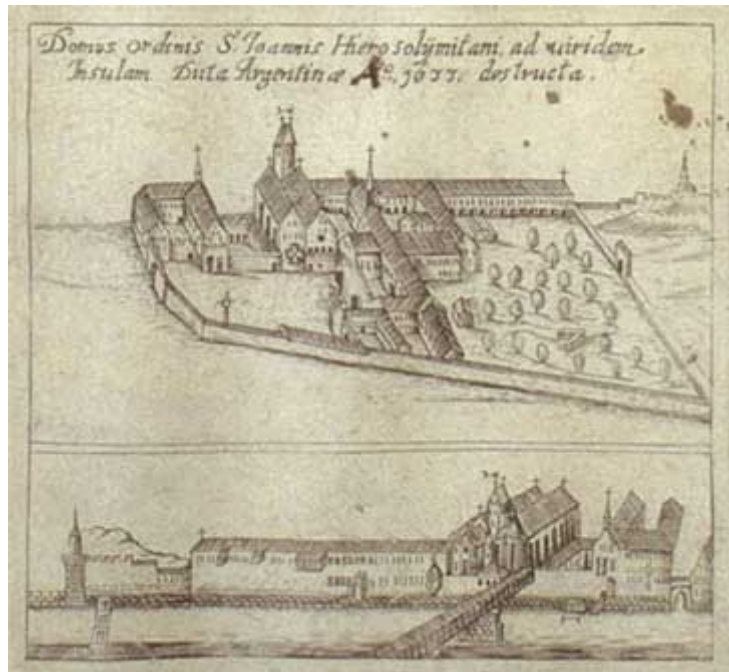 Domus Ordinis S. Ioannis Hierosolymitani, ad viridem
Insulam Dicta Argentinæ Aº. 1633. destructa.